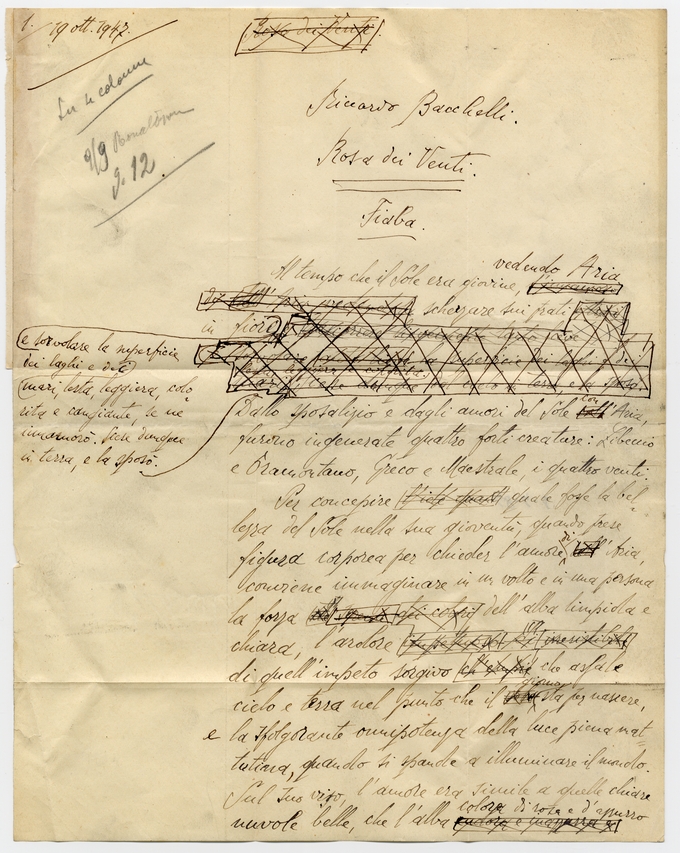 1.
19 ott. 1947.
Rosa dei Venti
In 4 colonne
9/9
g. 12
Riccardo Bacchelli.
Rosa dei Venti.
Fiaba.
Al tempo che il Sole era giovine, vedendo Aria
scherzare sui prati
in fiore
e sorvolare la superficie
dei laghi e dei
mari, lesta, leggiera, colo-
rita e cangiante, se ne
innamorò. Scese dunque
in terra, e la sposò.
Dallo sposalizio e dagli amori del Sole con Aria,
furono ingenerate quattro forti creature: Libeccio
e Tramontano, Greco e Maestrale, i quattro venti.
Per concepire quale fosse la bel-
lezza del Sole nella sua gioventù, quando prese
figura corporea per chieder l'amore di Aria,
conviene immaginare in un volto e in una persona
la forza dell'alba limpida e
chiara, l'ardore
di quell'impeto sorgivo che assale
cielo e terra nel punto che il giorno sta per nascere,
e la sfolgorante onnipotenza della luce piena mat-
tutina, quando si spande a illuminare il mondo.
Sul suo viso, l'amore era simile a quelle chiare
nuvole belle, che l'alba colora di rosa e d'azzurro